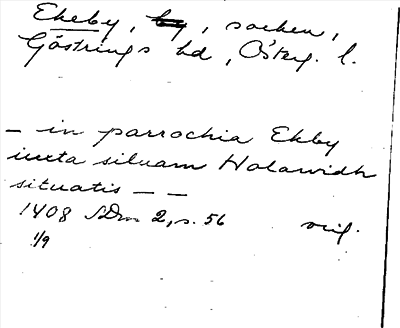 Ekeby, by, socken,
Göstrings hd, Österg. l.
– in parrochia Ekby
iuxta siluam Holawidh
situatis – –
1408 SDns 2, s. 56 orig.
1/9